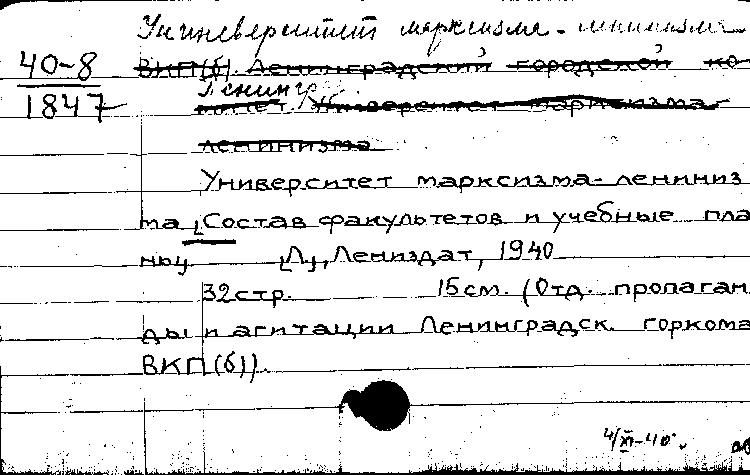 Университет марксизма-ленинизма
40-8
1847
ВКП(б). Ленинградский городской ко-
Ленингр.
митет. Университет марксизма-
ленинизма
Университет марксизма-лениниз
ма [Состав факультетов и учебные пла
ны] [Л], Лениздат, 1940
32 стр. 15 см. (Отд. пропаган
ды и агитации Ленинградск. горкома
ВКП(б)).
4/XI-40.